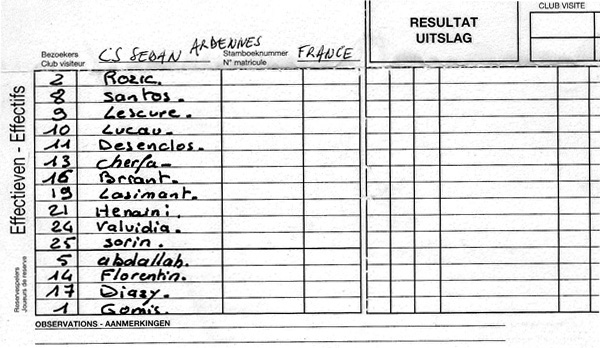 CLUB VISITE
RESULTAT
UITSLAG
Bezoekers
Club visiteur
CS SEDAN ARDENNES
Stamboeknummer
N° matricule
FRANCE
Effectieven - Effectifs
2 Rozic.
8 Santos.
9 Lescure.
10 Lucau.
11 Desenclos.
13 Cherfa
16 Brrant.
19 Lasimant.
21 Henaini.
24 Valvidia.
25 Sorin.
Reservespelers
Joueurs de reserve
5 abdallah.
14 Florentin.
17 Diazy.
1 Gomis.
OBSERVATIONS - AANMERKINGEN